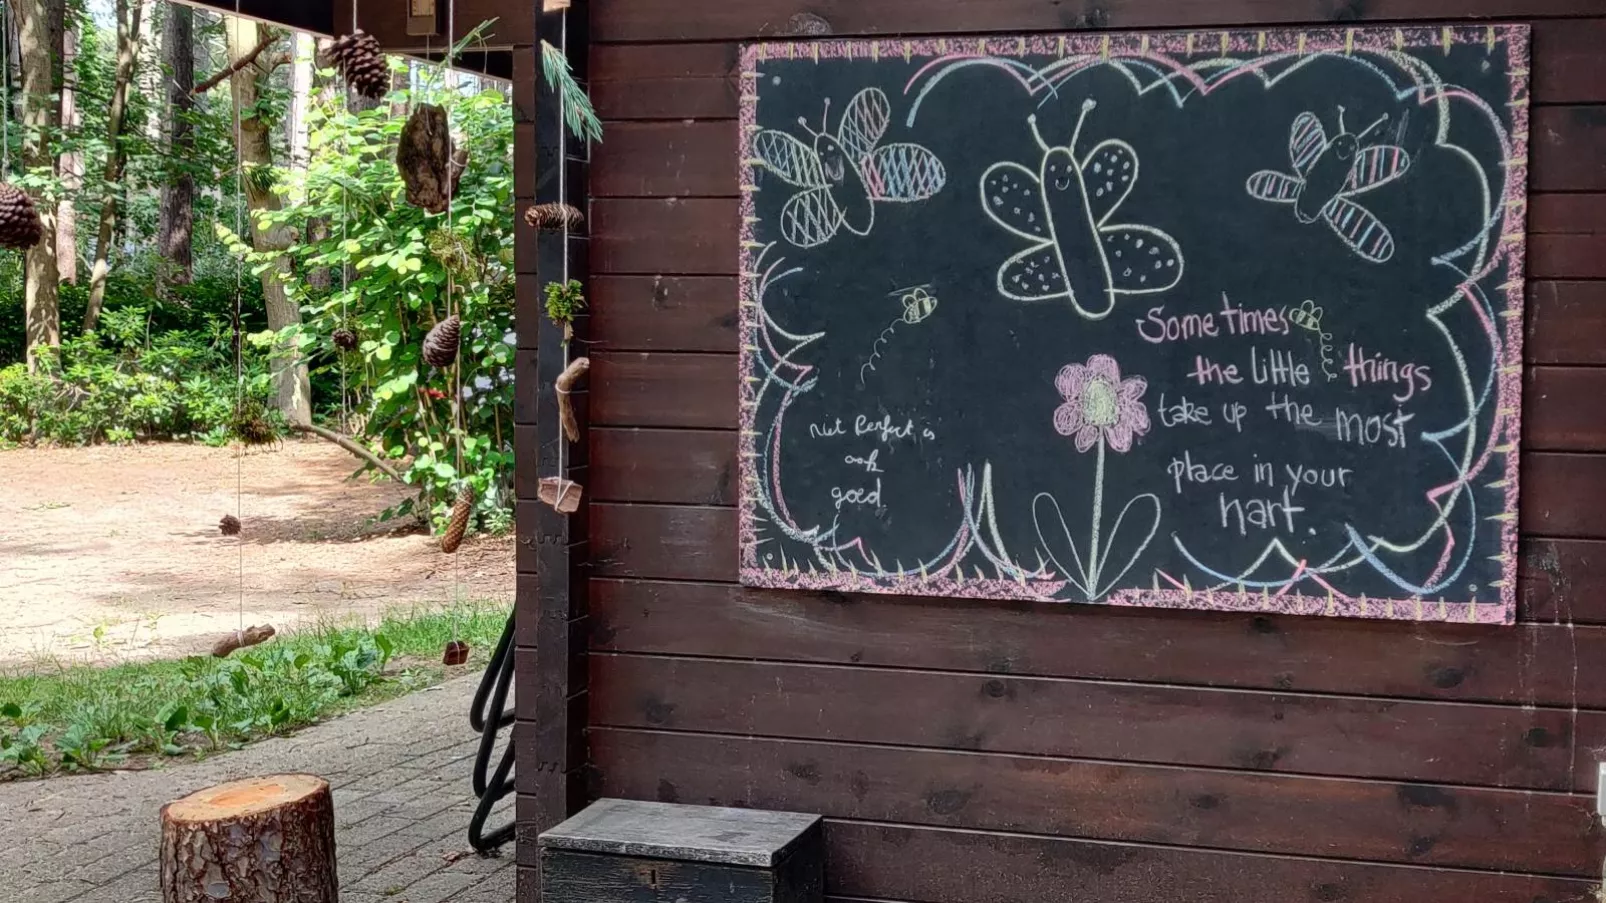 Sometimes
the little things
take up the most
place in your
hart.
not Perfect is
ook
goed